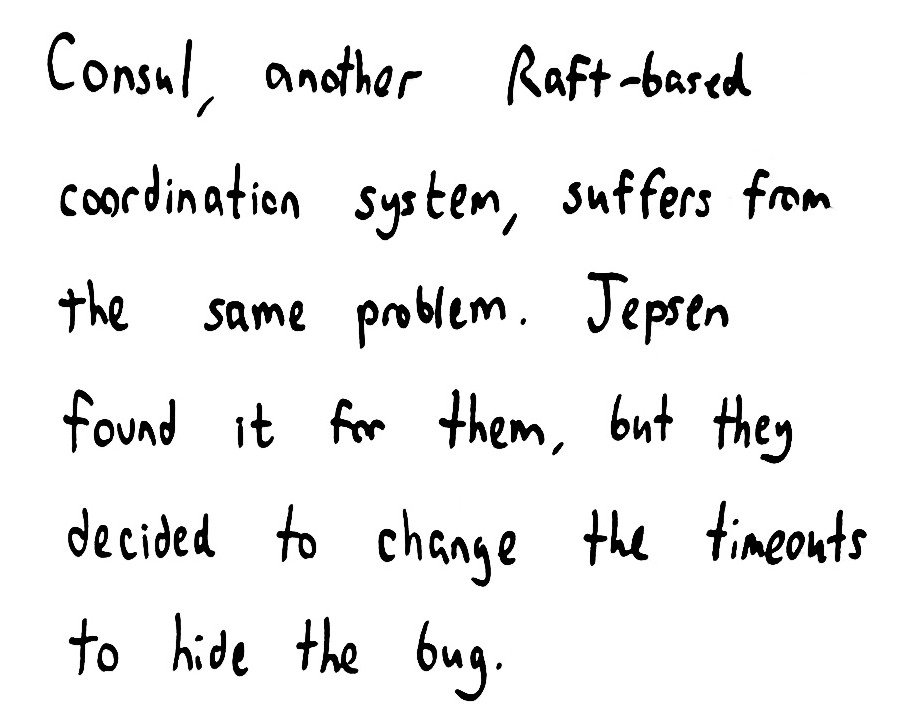 Consul, another Raft-based
coordination system, suffers from
the same problem. Jepsen
found it for them, but they
decided to change the timeouts
to hide the bug.